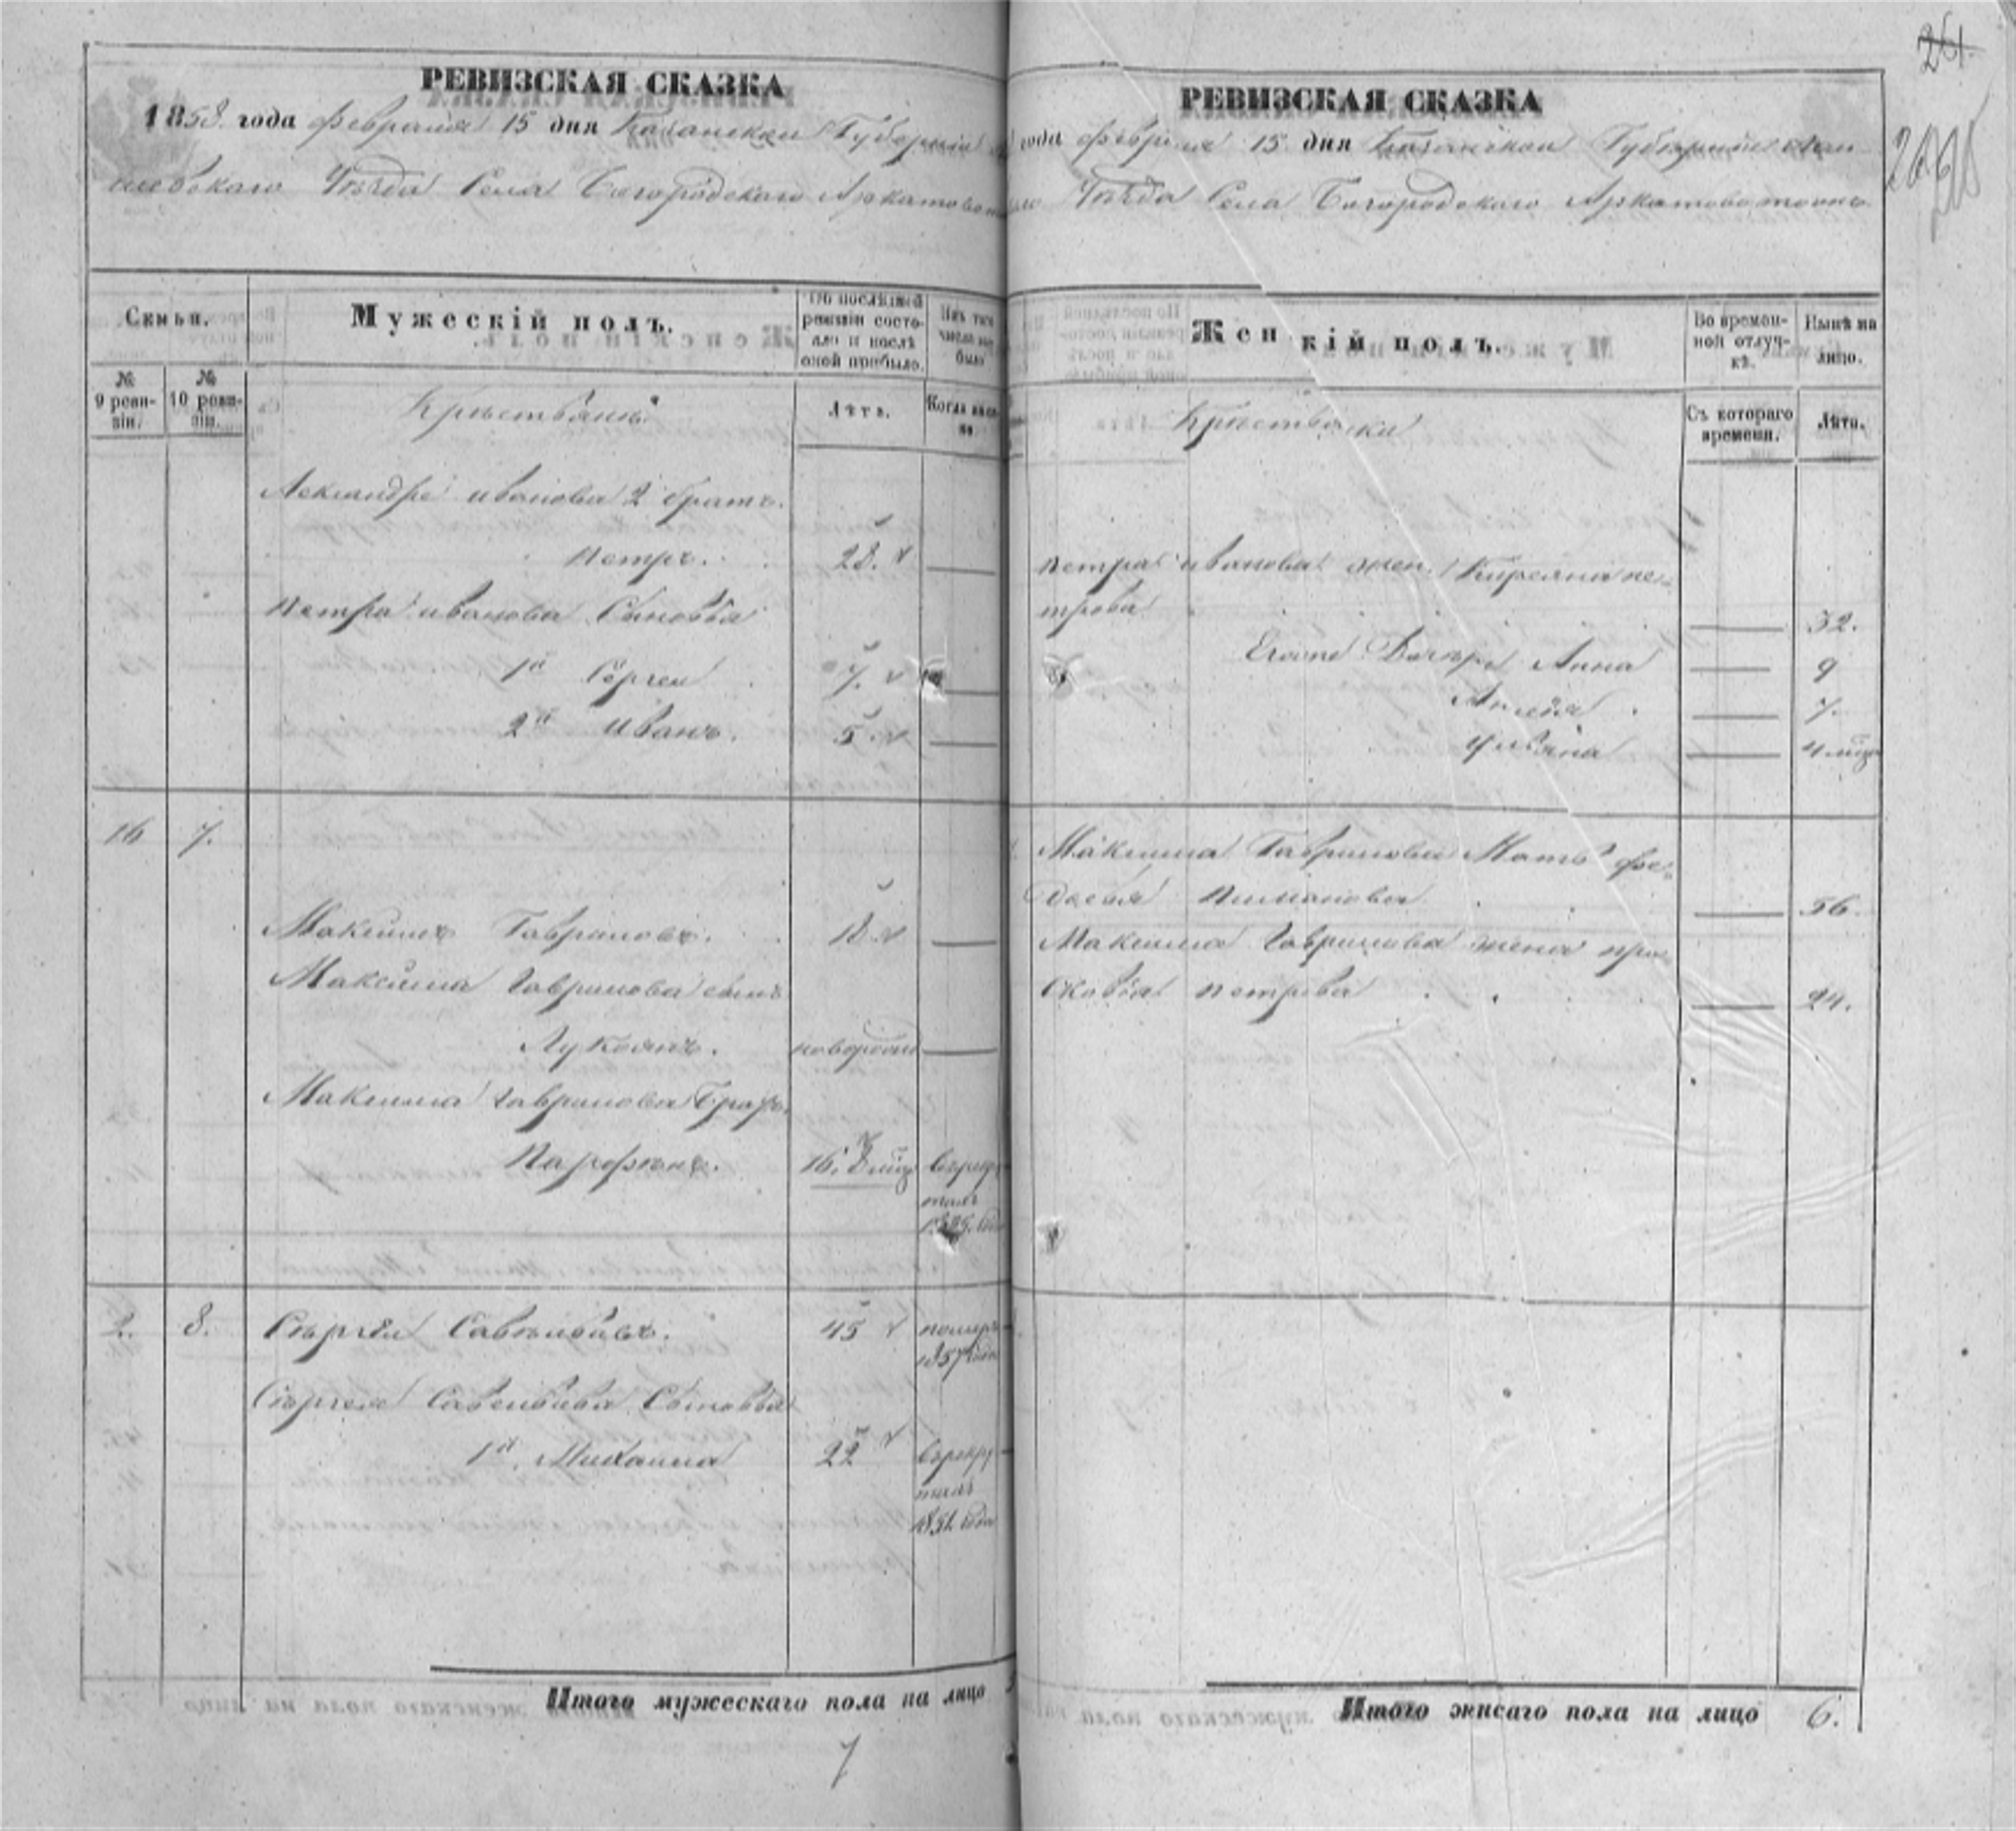 РЕВИЗСКАЯ СКАЗКА
1858. года февраля 15 дня Казанской Губернии
Уѣзда Села Богородскаго Аркатово тожъ
Семьи.
Мужескій полъ.
По послѣдней ревизіи состояло и послѣ оной прибыло.
Изъ того числа выбыло
№ 9 ревизіи.
№ 10 ревизіи.
Крестьяне
Лѣта.
Когда именно
Александра иванова 2 братъ.
петръ. 28.
петра иванова Сыновья
1й Сергеи 7.
2й иванъ. 5.
16 7.
Максимъ Гавриловъ. 18
Максима Гаврилова сынъ
Лукоянъ. новорожд
Максима Гаврилова Братъ
Парфенъ. 16.
2. 8. Сергеи Савельевъ. 45 померъ
1857 года
Сергея Савельева Сыновья
1й Михаила 22
1851. года
Итого мужескаго пола на лицо
7
261
РЕВИЗСКАЯ СКАЗКА
года февраля 15 дня Казанской Губернии
Уѣзда Села Богородскаго Аркатово тожъ
Жен кій полъ.
Во временной отлучкѣ.
Нынѣ на лицо.
Крестьянки
Съ котораго времени.
Лѣта.
петра иванова жена пе-
трова 32.
Дочери Анна 9
7.
4 мѣс
Максима Гаврилова Мать Фе-
досья 56.
Максима Гаврилова жена пра-
сковья петрова 24.
Итого жнсаго пола на лицо 6.